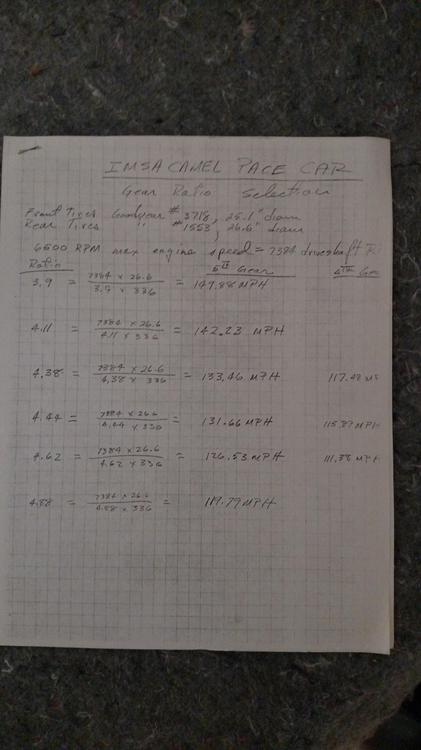 IMSA CAMEL PACE CAR
Gear Ratio Selection
Front Tires Goodyear #3718, 25.1" diam
Rear Tires " #1553, 26.6" diam
6500 RPM max engine speed = 7384 driveshaft R
Ratio 5TH Gear
3.9 = 7384 x 26.6 / 3.9 x 336 = 149.88 MPH
4.11 = 7384 x 26.6 / 4.11 x 336 = 142.23 MPH
4.38 = 7384 x 26.6 / 4.38 x 336 = 133.46 MPH 117.48
4.44 = 7384 x 26.6 / 4.44 x 336 = 131.66 MPH 115.87 MPH
4.62 = 7384 x 26.6 / 4.62 x 336 = 126.53 MPH 111.38
4.88 = 7384 x 26.6 / 4.88 x 336 = 119.79 MPH